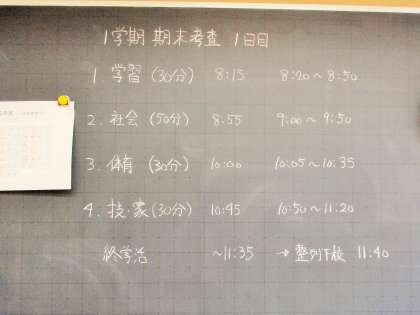 1学期 期末考査 1日目
1. 学習 (30分) 8:15 8:20〜8:50
2. 社会 (50分) 8:55 9:00〜9:50
3. 体育 (30分) 10:00 10:05〜10:35
4. 技・家 (30分) 10:45 10:50〜11:20
終学活 〜11:35 → 整列下校 11:40